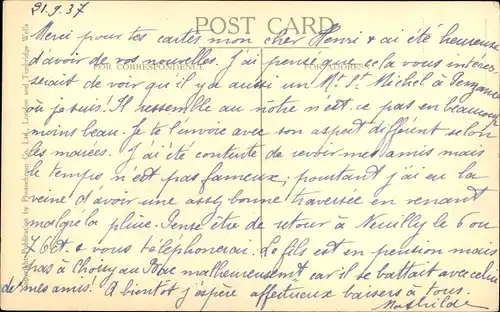 21.9.37
POST CARD
Merci pour tes cartes mon cher Henri & ai été heureuse
d'avoir de vos nouvelles. J'ai pensé que cela vous intéres-
FOR CORRESPONDENCE
serait de voir qu'il y a aussi un Mt. St Michel à Penzance
où je suis! Il ressemble au nôtre n'est ce pas en beaucoup
moins beau. Je te l'envoie avec son aspect différent selon
les marées. J'ai été contente de revoir mes amis mais
le temps n'est pas fameux, pourtant j'ai eu la
veine d'avoir une assez bonne traversée en venant
malgré la pluie. Pense être de retour à Neuilly le 6 ou
7 Oct & vous téléphonerai. Le fils est en pension mais
pas à Choisy au Bac malheureusement car il se battait avec celui
de mes amis! A bientôt j'espère affectueux baisers à tous.
Mathilde
Publication by Photochrom Co. Ltd., London and Tunbridge Wells